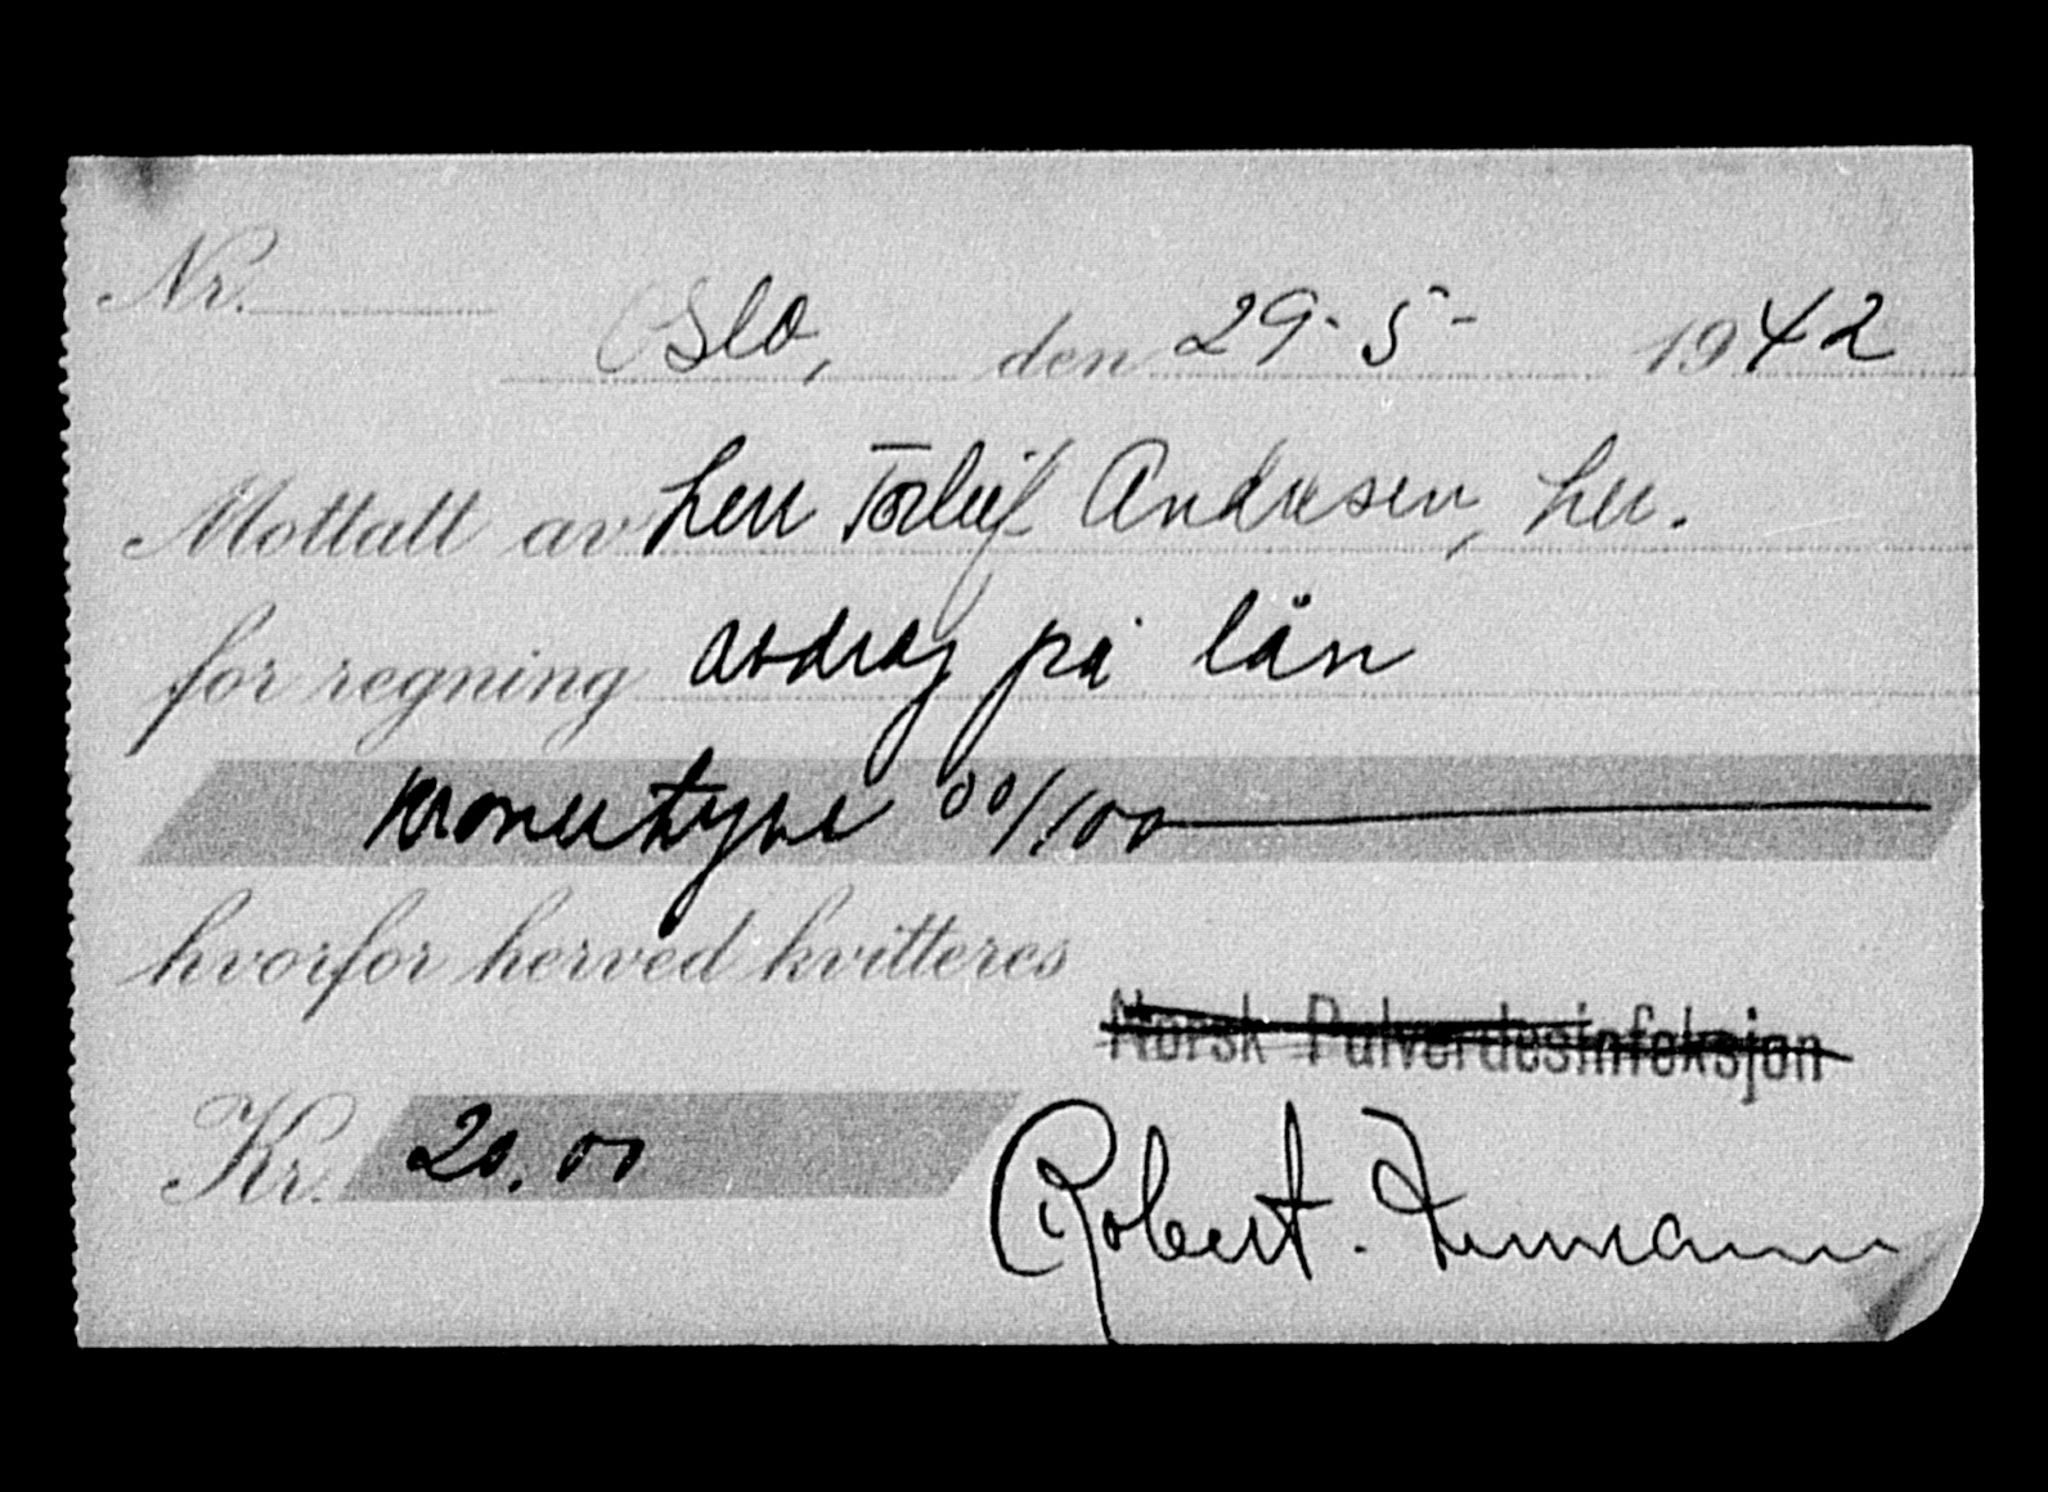 Nr.
Oslo, den 29-5- 1942
Mottatt av herr Torleif Andresen, her.
for regning avdrag på lån
kroner tyve 00/100
hvorfor herved kvitteres
Norsk Pulverdesinfeksjon
Kr. 20.00
Robert.